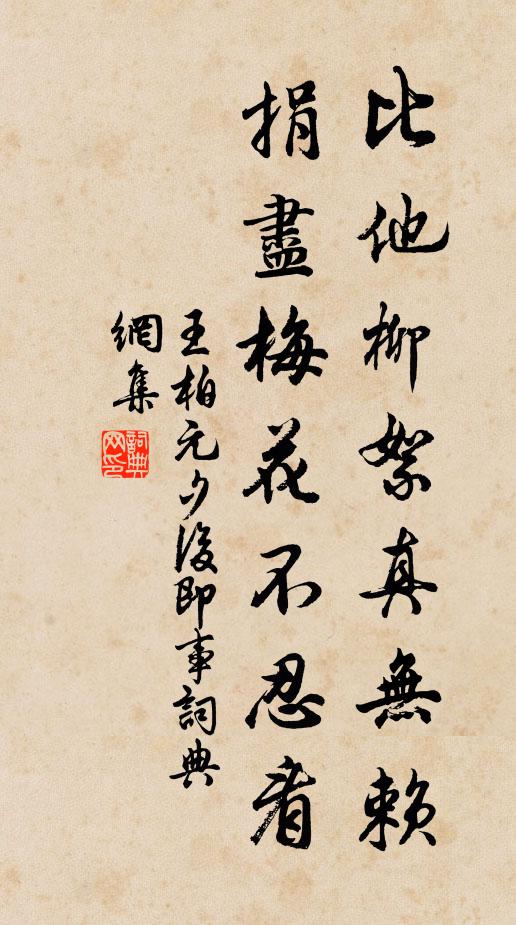 比他柳絮真無賴
捐盡梅花不忍看
王柏元夕後即事詞典
網集
詞典網印